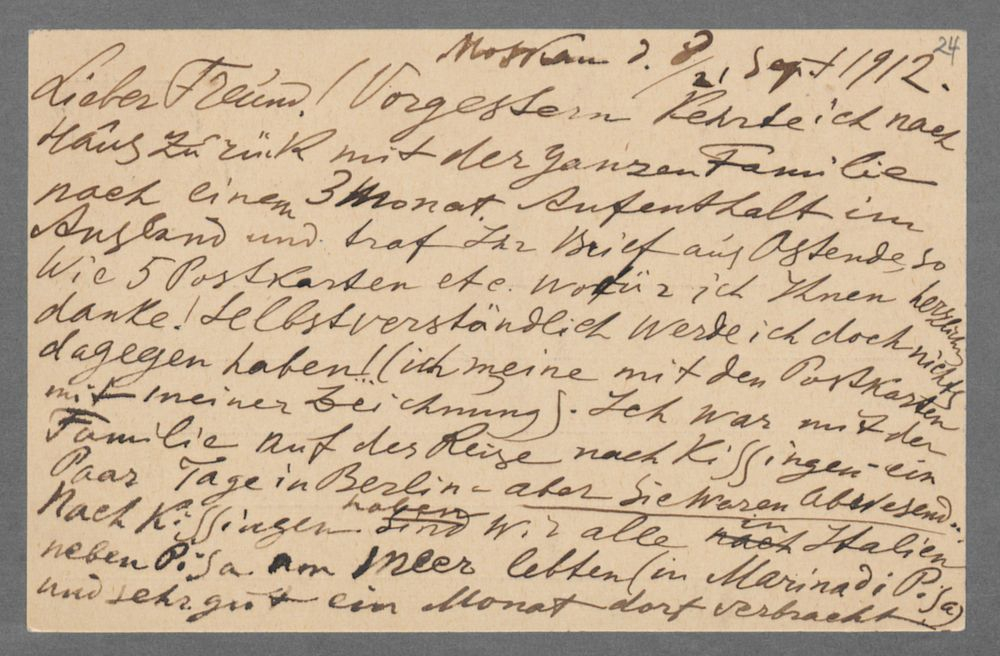 24
Moskau d. 8/21 Sept 1912.
Lieber Freund! Vorgestern kehrte ich nach
Haus zurük mit der ganzen Familie
nach einem 3 Monat. Aufenthalt im
Ausland und traf Ihr Brief aus Ostende, so
wie 5 Postkarten etc. wofür ich Ihnen herzlich
danke! Selbstverständlich werde ich doch nichts
dagegen haben! (ich meine mit den Postkarten
mit meiner Zeichnung). Ich war mit der
Familie auf der Reise nach Kissingen – ein
Paar Tage in Berlin – aber Sie waren abwesend..
Nach Kissingen sind haben wir alle nach in Italien
neben Pisa am Meer lebten (in Marina di Pisa)
und sehr gut ein Monat dort verbracht.